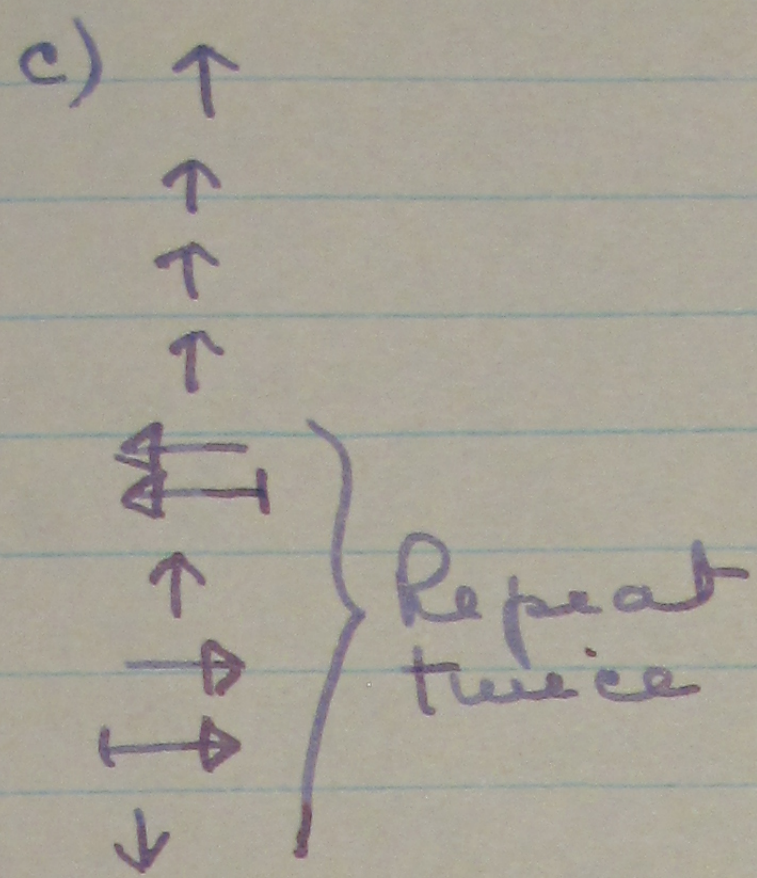 c) ↑
↑
↑
↑
←
←
↑
→
↦
↓
Repeat
twice